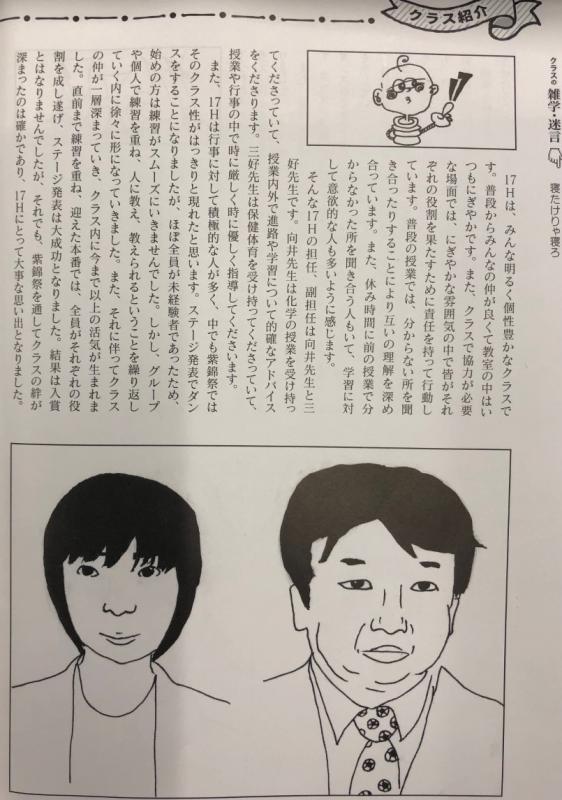 クラス紹介
クラスの雑学・迷言
寝たけりゃ寝ろ
17Hは、みんな明るく個性豊かなクラスで
す。普段からみんなの仲が良くて教室の中はい
つもにぎやかです。また、クラスで協力が必要
な場面では、にぎやかな雰囲気の中で皆がそれ
ぞれの役割を果たすために責任を持って行動し
ています。普段の授業では、分からない所を聞
き合ったりすることにより互いの理解を深め
合っています。また、休み時間に前の授業で分
からなかった所を聞き合う人もいて、学習に対
して意欲的な人も多いように感じます。
そんな17Hの担任、副担任は向井先生と三
好先生です。向井先生は化学の授業を受け持っ
てくださっていて、授業内外で進路や学習について的確なアドバイス
をくださります。三好先生は保健体育を受け持ってくださっていて、
授業や行事の中で時に厳しく時に優しく指導してくださいます。
また、17Hは行事に対して積極的な人が多く、中でも紫錦祭では
そのクラス性がはっきりと現れたと思います。ステージ発表でダン
スをすることになりましたが、ほぼ全員が未経験者であったため、
始めの方は練習がスムーズにいきませんでした。しかし、グループ
や個人で練習を重ね、人に教え、教えられるということを繰り返し
ていく内に徐々に形になっていきました。また、それに伴ってクラス
の仲が一層深まっていき、クラス内に今まで以上の活気が生まれま
した。直前まで練習を重ね、迎えた本番では、全員がそれぞれの役
割を成し遂げ、ステージ発表は大成功となりました。結果は入賞
とはなりませんでしたが、それでも、紫錦祭を通してクラスの絆が
深まったのは確かであり、17Hにとって大事な思い出となりました。